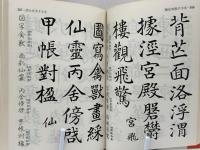 背芒面洛浮渭
據涇宮殿盤鬱
樓觀飛驚
宮 飛
圖寫禽獸畫綵
仙靈丙舍傍啓
甲帳對楹
仙